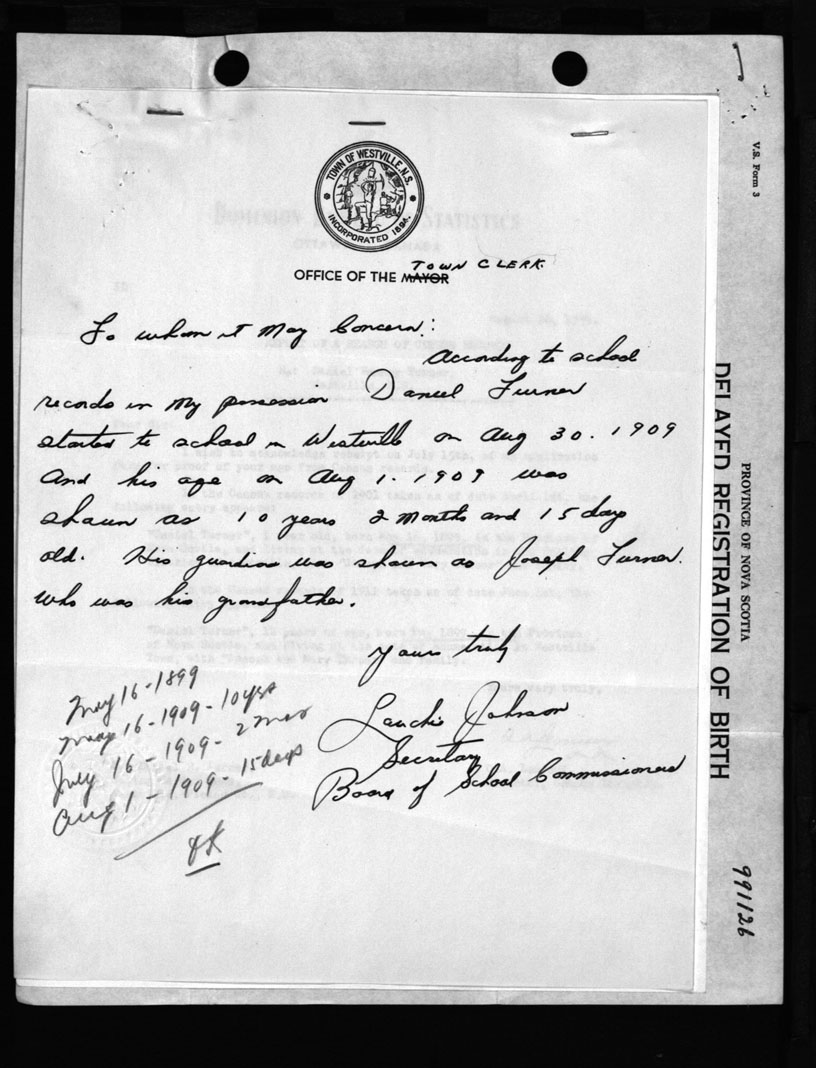 V.S. Form 3
PROVINCE OF NOVA SCOTIA
DELAYED REGISTRATION OF BIRTH
991126
TOWN OF WESTVILLE, N.S.
INCORPORATED 1894.
TOWN CLERK.
OFFICE OF THE MAYOR
To whom it May Concern:
According to school
records in my possession Daniel Turner
started to school in Westville on Aug 30. 1909
and his age on Aug 1. 1909 was
shown as 10 years 2 months and 15 days
old. His guardian was shown as Joseph Turner.
who was his grandfather.
Yours truly
Lauchie Johnson
Secretary
Board of School Commissioners
May 16-1899
May 16-1909-10 yrs
July 16-1909-2 mos
Aug 1-1909-15 days
OK